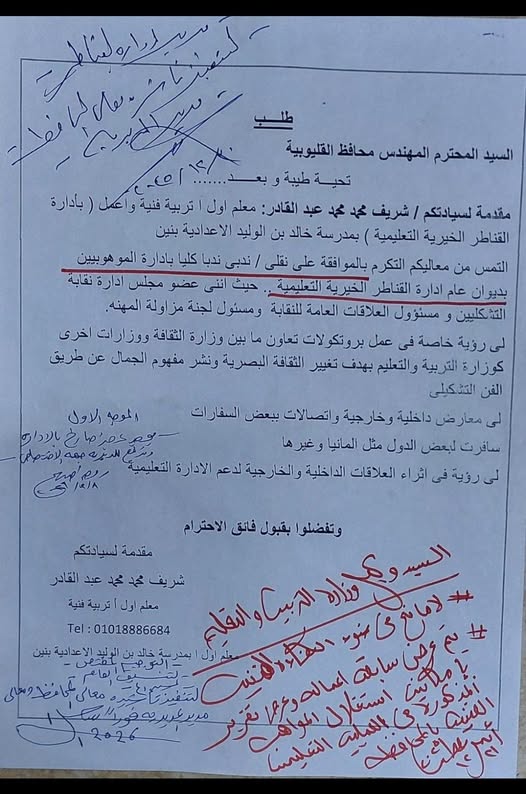 مدير إدارة القناطر
لتنفيذ تأشيرة معالى المحافظ
مدير المديرية
طلب
السيد المحترم المهندس محافظ القليوبية
تحية طيبة و بعد.......
مقدمة لسيادتكم / شريف محمد محمد عبد القادر: معلم اول ا تربية فنية واعمل ( بأدارة
القناطر الخيرية التعليمية ) بمدرسة خالد بن الوليد الاعدادية بنين
التمس من معاليكم التكرم بالموافقة على نقلى / ندبى ندبا كليا بادارة الموهوبيين
بديوان عام ادارة القناطر الخيرية التعليمية .. حيث اننى عضو مجلس ادارة نقابة
التشكليين و مسئوول العلاقات العامة للنقابة ومسئول لجنة مزاولة المهنه.
لى رؤية خاصة فى عمل بروتكولات تعاون ما بين وزارة الثقافة ووزارات اخرى
كوزارة التربية والتعليم بهدف تغيير الثقافة البصرية ونشر مفهوم الجمال عن طريق
الفن التشكيلى
لى معارض داخلية وخارجية واتصالات ببعض السفارات
سافرت لبعض الدول مثل المانيا وغيرها
لى رؤية فى اثراء العلاقات الداخلية والخارجية لدعم الادارة التعليمية
الموجه الاول
وتفضلوا بقبول فائق الاحترام
مقدمة لسيادتكم
شريف محمد محمد عبد القادر
معلم اول أ تربية فنية
Tel : 01018886684
معلم اول ا بمدرسة خالد بن الوليد الاعدادية بنين
السيد وكيل وزارة التربية والتعليم
# لا مانع فى ضوء
# يتم عرض سابقة اعماله وعرض تقرير
استغلال المواهب
فى العملية التعليمية
الفنية بالمحافظة
لتنفيذ تأشيرة معالى المحافظ
2026